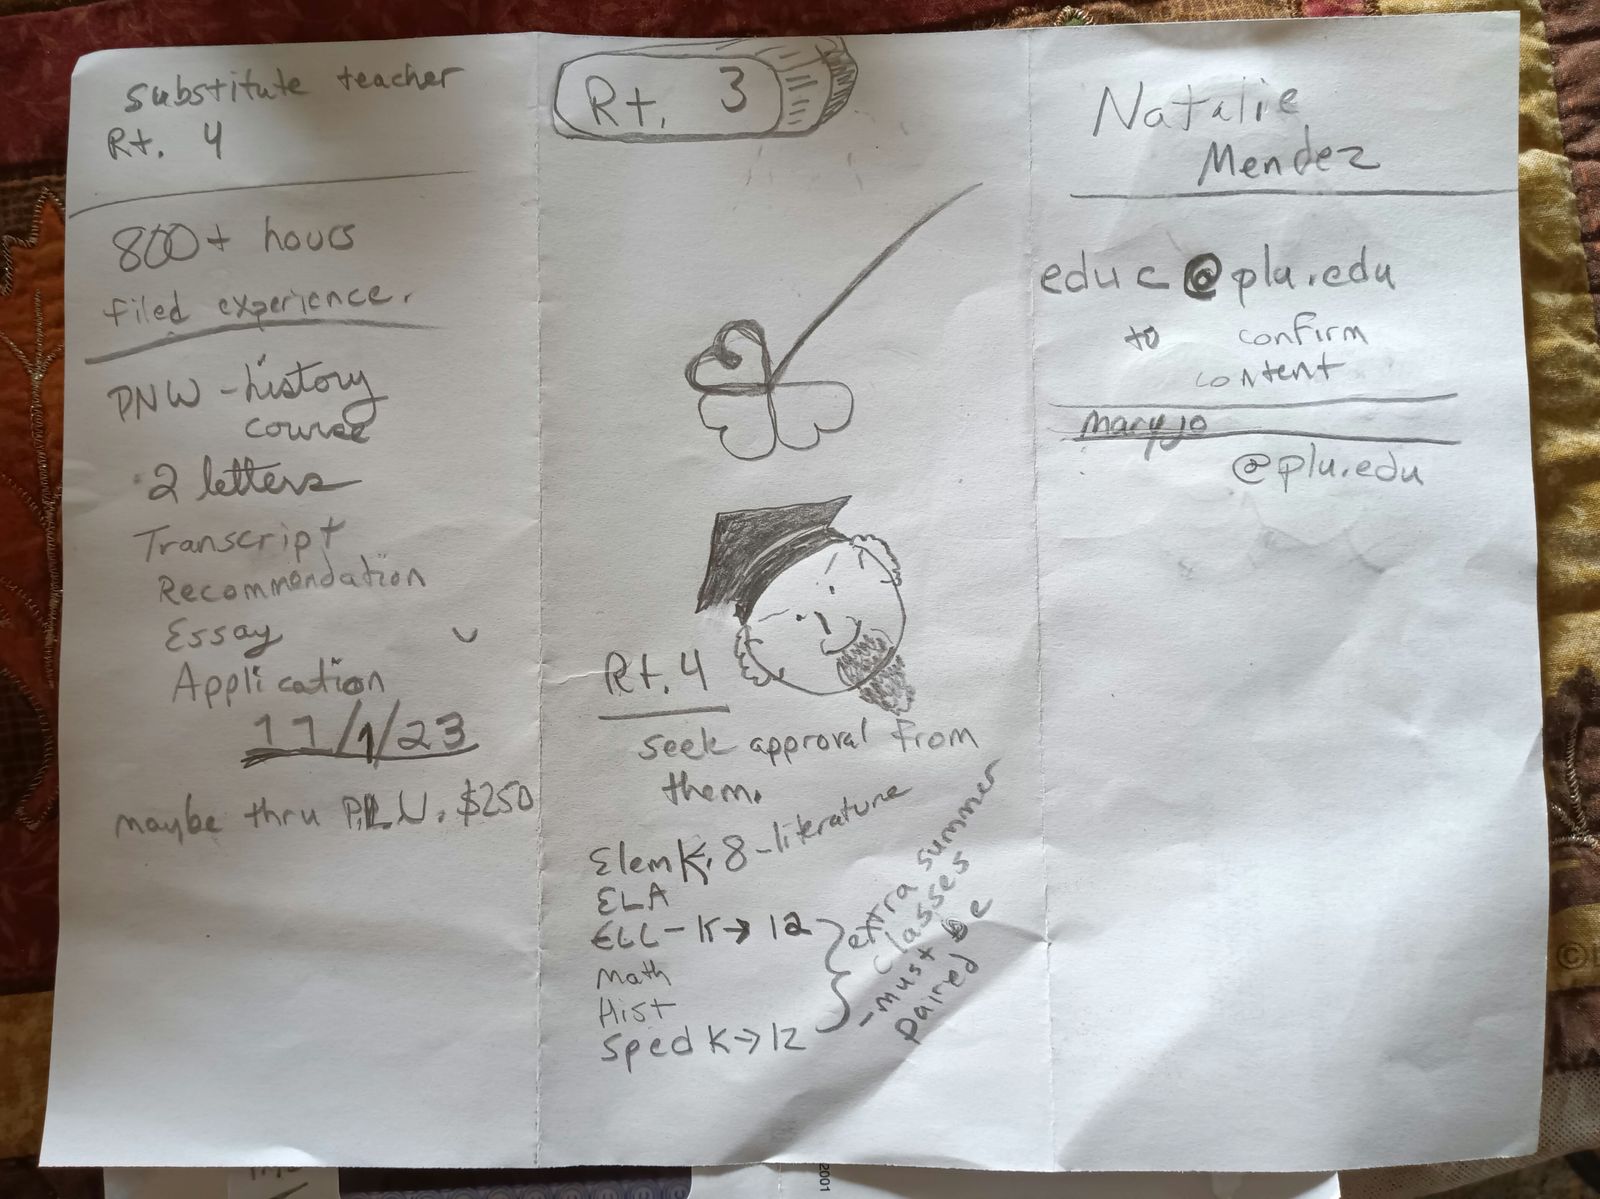 Substitute teacher
Rt. 4
800+ hours
filed experience.
PNW - history
course
2 letters
Transcript
Recommendation
Essay
Application
11/1/23
maybe thru P.L.U. $250
Rt. 3
Rt. 4
seek approval from
them.
Elem K-8 - literature
ELA
ELL - K → 12
Math
Hist
Sped K → 12
extra summer
classes
- must be
paired
Natalie
Mendez
educ@plu.edu
to confirm
content
maryjo
@plu.edu
2001